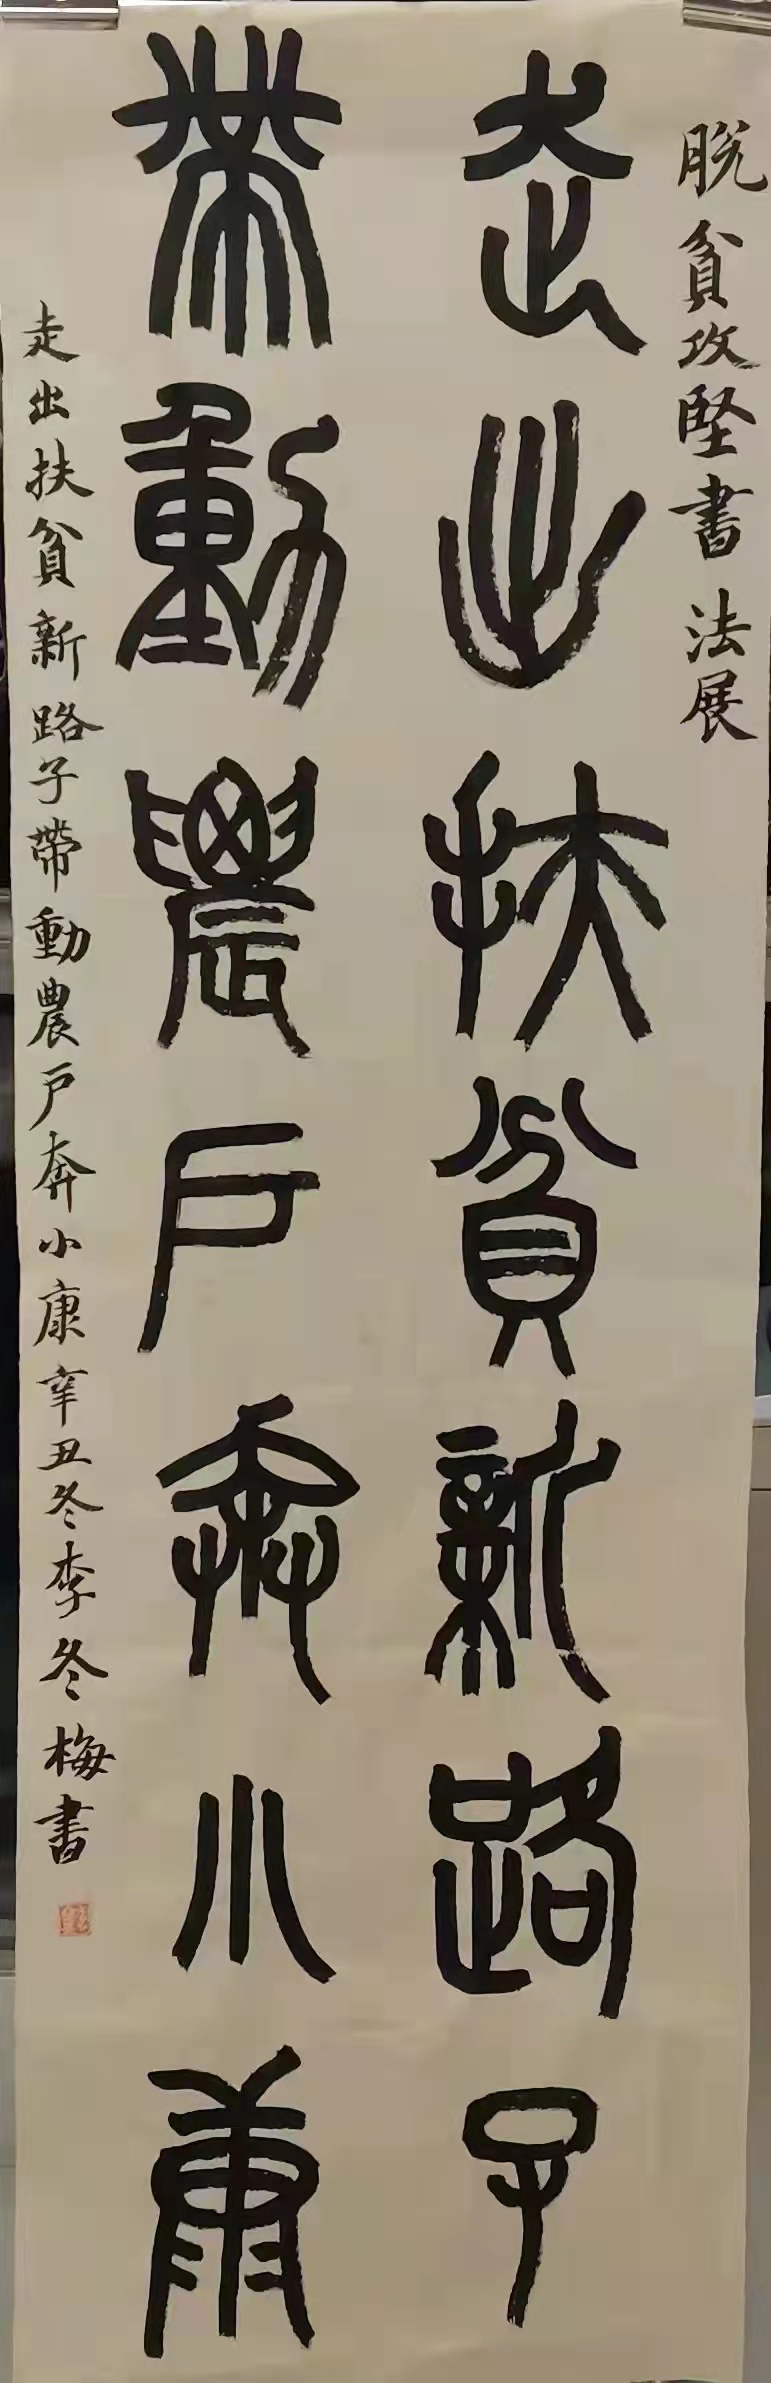 脫貧攻堅書法展
走出扶貧新路子
帶動農戶奔小康
走出扶貧新路子帶動農戶奔小康辛丑冬李冬梅書